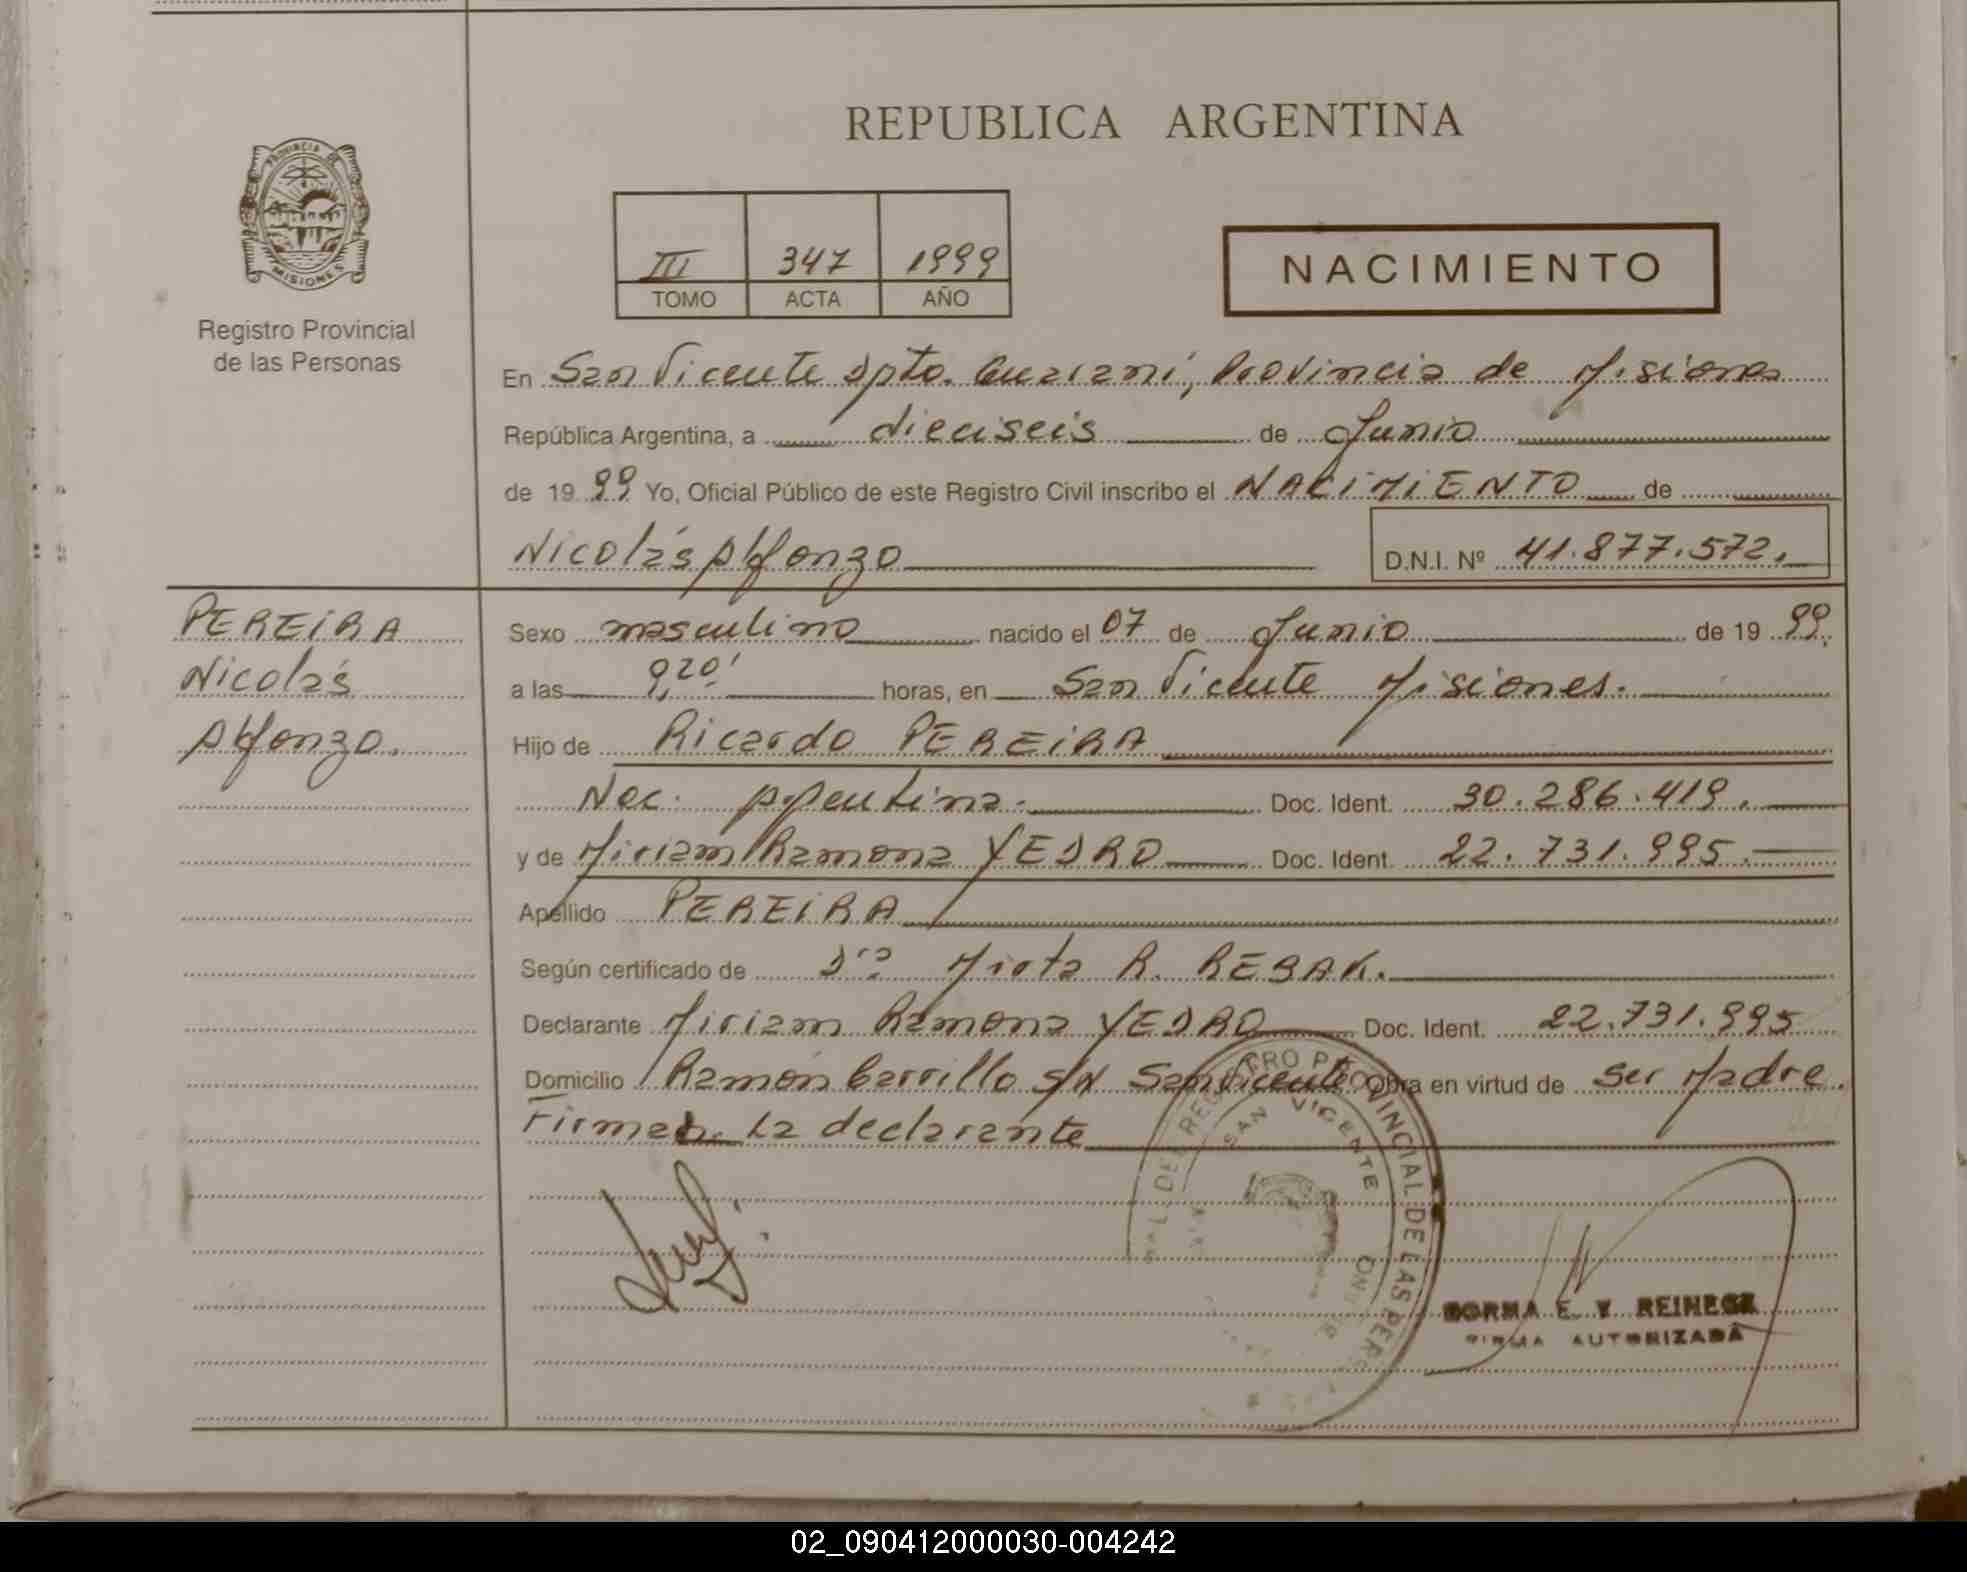 REPUBLICA ARGENTINA
PROVINCIA DE
MISIONES
Registro Provincial
de las Personas
III 347 1999
TOMO ACTA AÑO
NACIMIENTO
En San Vicente Dpto. Guaraní, Provincia de Misiones
República Argentina, a dieciseis de Junio
de 1999 Yo, Oficial Público de este Registro Civil inscribo el NACIMIENTO de
Nicolás Alfonzo D.N.I. Nº 41.877.572.
PEREIRA
Nicolás
Alfonzo.
Sexo masculino nacido el 07 de Junio de 1999.
a las 9,20' horas, en San Vicente Misiones.
Hijo de Ricardo PEREIRA
Nac. Argentina. Doc. Ident. 30.286.419.
y de Miriam Ramona YEDRO Doc. Ident. 22.731.995.
Apellido PEREIRA
Según certificado de Dra Mirta R. REBAK.
Declarante Miriam Ramona YEDRO Doc. Ident. 22.731.995
Domicilio Ramón Carrillo S/N San Vicente Obra en virtud de ser Madre.
Firma la declarante
DEL REGISTRO PROVINCIAL DE LAS PERS
SAN VICENTE
NORMA E. V. REINEGE
FIRMA AUTORIZADA
02_090412000030-004242